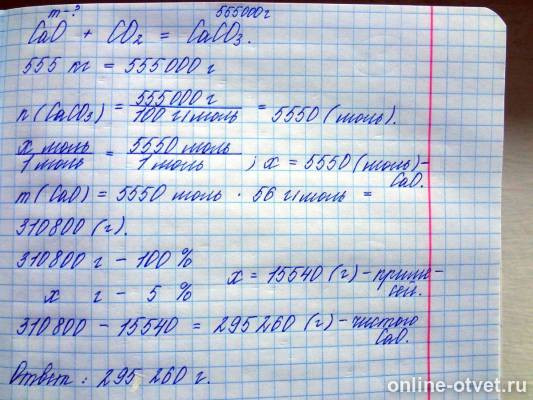 m - ? 555000г
CaO + CO2 = CaCO3.
555 кг = 555000 г
n(CaCO3) = 555000 г / 100 г/моль = 5550 (моль).
x моль / 1 моль = 5550 моль / 1 моль ; x = 5550 (моль) - CaO.
m(CaO) = 5550 моль · 56 г/моль =
310800 (г).
310800 г - 100 %
x г - 5 % x = 15540 (г) - примесей.
310800 - 15540 = 295260 (г) - чистого CaO.
Ответ: 295 260 г.
online-otvet.ru